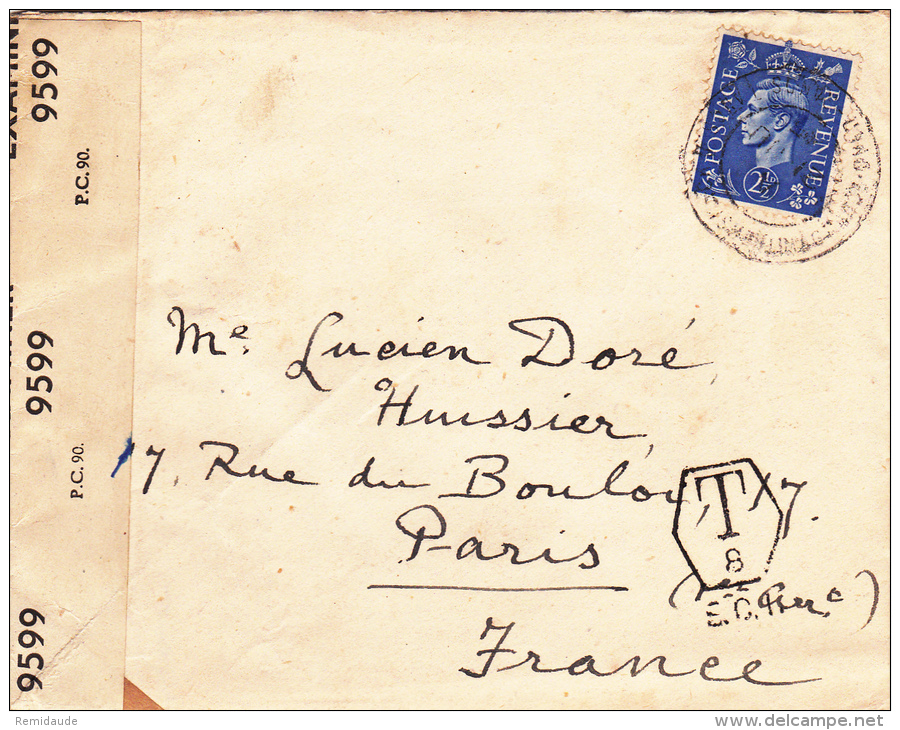 EXAMINER
9599
P.C. 90.
9599
P.C. 90.
9599
POSTAGE
REVENUE
2½D
Me. Lucien Doré,
Huissier,
17, Rue du Bouloi, 17.
Paris
France
T
8
E.C.
Remidaude
www.delcampe.net